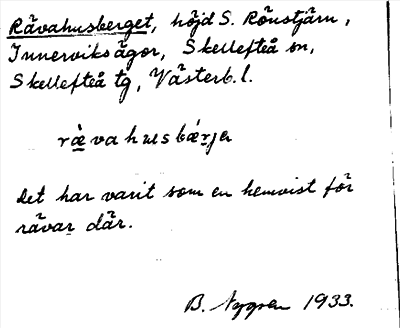 Rävahusberget, höjd S. Rönstjärn,
Innerviksägor, Skellefteå sn,
Skellefteå tg, Västerb. l.
rǽvahusbǽrjer
Det har varit som en hemvist för
rävar där.
B. Nygren 1933.